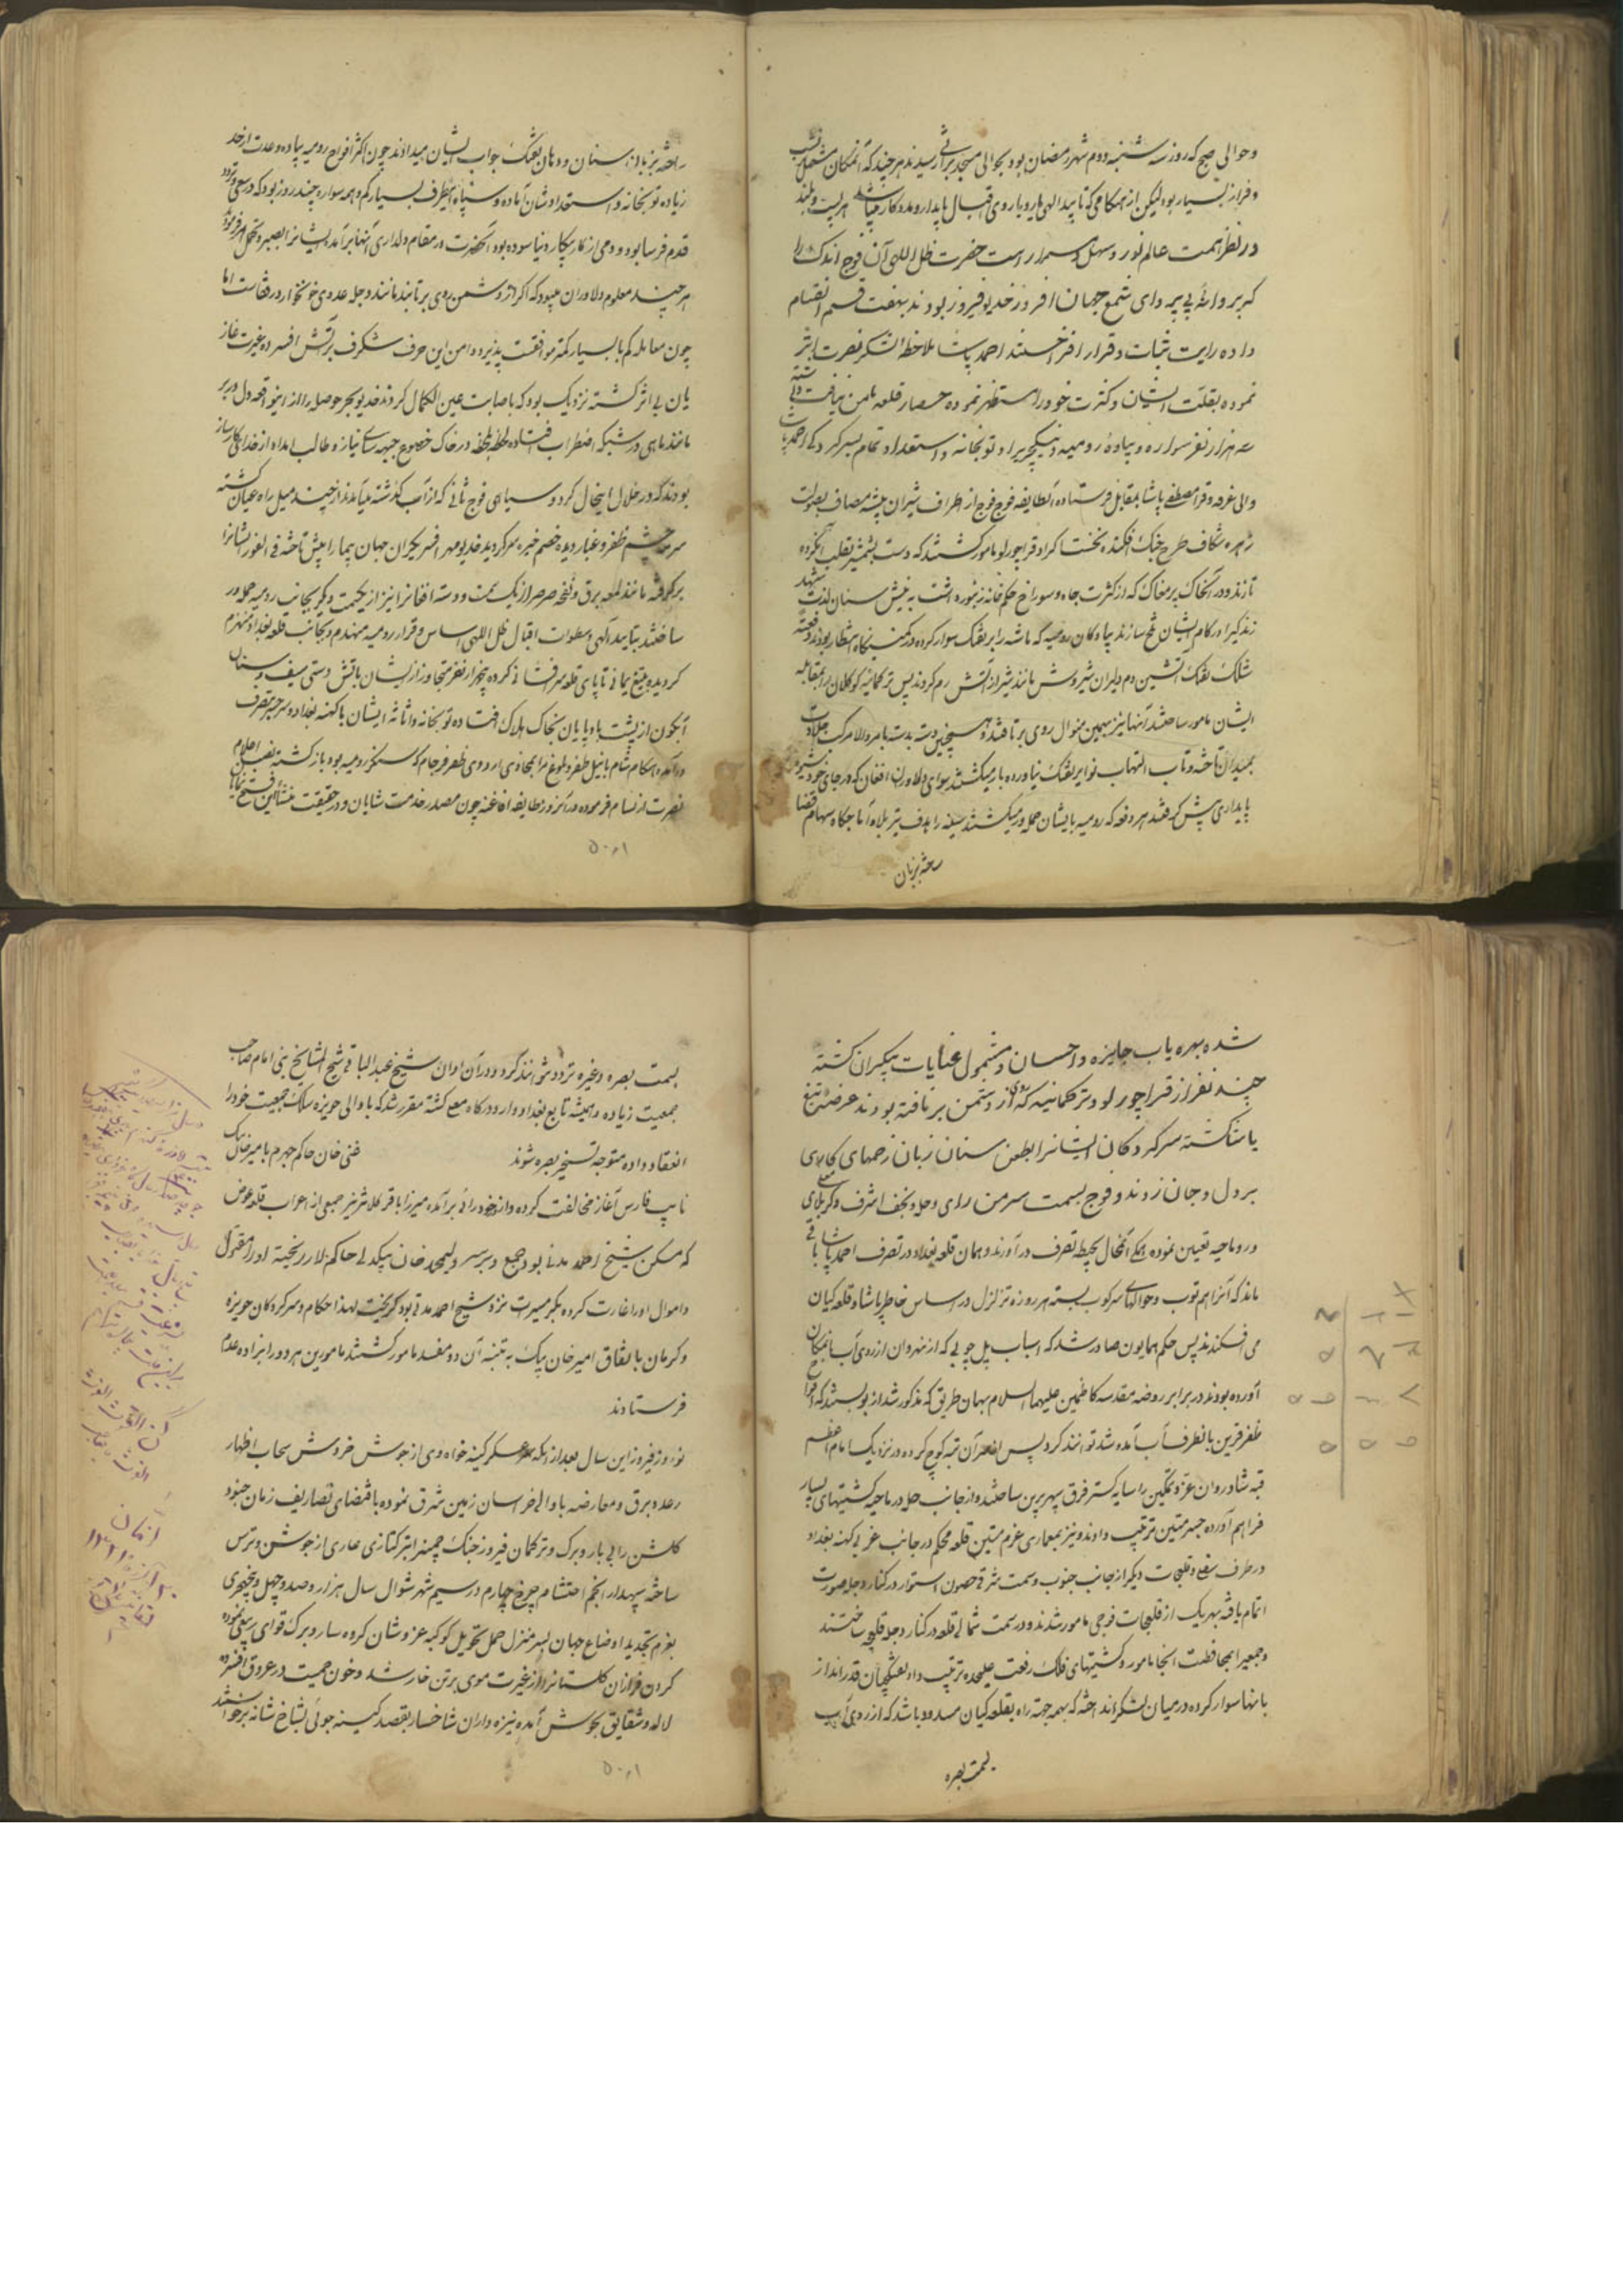 وحوالی صبح که روز سه شنبه دوم شهر رمضان بود بحوالی مسجد براثی رسیدند هرچند که آنمکان مشتمل نشیب
وفراز بسیار بود لیکن از هنگامی که تایید الهی یار و یاروی اقبال پایدار و مددکار میباشد هر پست و بلند
در نظر همت عالم نورد سهل و هموار است حضرت ظل اللهی آن فوج اندک را
که پروانهٔ بی پروای شمع جهان افروز خدیو فیروز بودند بهفت قسم انقسام
داده رایت ثبات و قرار افراختند احمد پاشا ملاحظه لشکر نصرت اثر
نموده بقلت ایشان و کثرت خود را مستظهر نموده حصار قلعه مامن نیافت
سه هزار نفر سواره و پیاده رومیه و نیکچری را و توپخانه و استعداد تمام بسرکردکی احمد پاشا
والی عرفه و قرا مصطفی پاشا بمقابل فرستاده آنطایفه فوج فوج از اطراف شیران بیشه مصاف بصولت
زهره شکاف طرح جنگ افکنده نخست اکراد قراچورلو مامور کشتند که دست بشمشیر بقلب آنکروه
تازند و در آنخاک پر مغاک که از کثرت چاه و سوراخ حکم خانه زنبور داشت به نیش سنان لذت شهد
زندگی را در کام ایشان تلخ سازند پیادکان رومیه که ماشه را بر تفنک سوار کرده در کمینگاه انتظار بودند دفعة
شلک تفنک آتشین دم دلیران شیروش مانند شیر از آتش رم کردند پس ترکمانیه کوکلان را بمقابله
ایشان مامور ساختند آنها نیز بهمین منوال روی برتافتند و همچنین دسته بدسته بامر والا مرکب جلادت
بمیدان تاخته و تاب التهاب نوایر تفنک نیاورده باز میکشتند سوای دلاوران افغان که در جای خود شیوه
پایداری پیش کرفتند هر دفعه که رومیه بایشان حمله ور میکشتند سینه را هدف تیر بلا و آماجکاه سهام قضا
ساخته بزبان
ساخته بزبان سنان و دهان تفنک جواب ایشان میدادند چون اکثر افواج رومیه پیاده و عدت از حد
زیاده توپخانه و استعداد شان آماده و سپاه اینطرف بسیار کم و همه سواره چند روز بود که در سعی و تردد
قدم فرسا بود و دمی از کار پیکار نیاسوده بود آنحضرت در مقام دلداری آنها برآمده ایشانرا بصبر و تحمل امر فرمود
هر چند معلوم دلاوران میبود که اکر از دشمن روی برتابند مانند دجله عدوی خونخوار در قفاست اما
چون معامله کم با بسیار کمتر موافقت پذیرد و امن این حرف شکرف بر آتش افسرده غیرت غاز
یان بی اثر کشته نزدیک بود که باصابت عین الکمال کردند خدیو بحر حوصله را از اینواقعه دل در بر
مانند ماهی در شبکه اضطراب افتاده لحظه بلحظه در خاک خضوع جبهه سای نیاز و طالب امداد از خدای کارساز
بودند که در خلال اینحال کرد و سیاهی فوج ثانی که از آب کذشته میآمدند از چند میل راه عیان کشته
سرمه چشم ظفر و غبار دیده خصم خیره سر کردید خدیو مهر افسر یکران جهان پیما را پیش تاخته فی الفور ایشانرا
برکرفته مانند لمعه برق و نفخه صرصر از یک سمت و دسته افغانرا نیز از یکسمت دیگر بجانب رومیه حمله ور
ساختند بتایید الهی و سطوات اقبال ظل اللهی اساس و قرار رومیه منهدم و بجانب قلعه بغداد منهزم
کردیده بتیغ یمانی تا پای قلعه سر افشانی کرده پنجهزار نفر متجاوز از ایشان باتش دستی سیف و سنان
آبکون از پشت بادپایان بخاک هلاک افتاده توپخانه و اثاثه ایشان با کهنه بغداد و سر جسر بتصرف
درآمده هنکام شام بانیل ظفر و بلوغ مرام بحاذی اردوی ظفر فرجام که سنکر رومیه بود بازکشته نصب اعلام
نصرت ارتسام فرموده در آنروز طایفه افاغنه چون مصدر خدمت شایان و در حقیقت منشأ این فتح نمایان
۵۰٫۱
شده بهره یاب جایزه و احسان و مشمول عنایات بیکران کشته
چند نفر از قراچورلو و ترکمانیه که روی از دشمن برتافته بودند عرضه تیغ
یاسا کشته سرکردکان ایشانرا بطعن سنان زبان زخمهای کاری
بر دل و جان زدند و فوج بسمت سرمن رای و حله و نجف اشرف و کربلای معلی
و رماحیه تعیین نموده همکی آنمحال بحیطه تصرف درآوردند و همان قلعه بغداد در تصرف احمد پاشا باقی
ماند که آنرا هم توپ و حوالهای سرکوب بسته هر روزه تزلزل در اساس خاطر پاشا و قلعه کیان
می افکندند پس حکم همایون صادر شد که اسباب پل چوبی که از نهروان از روی آب بانمکان
آورده بودند در برابر روضه مقدسه کاظمین علیهما السلام بهمان طریق که مذکور شد از نو بستند که افواج
ظفر قرین بانطرف آب آمد و شد توانند کرد پس از آن بنه کوچ کرده در نزدیک امام اعظم
قبه شادروان عز و تمکین را سایه کستر فرق سپهر برین ساختند و از جانب حله و رماحیه کشتیهای بسیار
فراهم آورده جسر متین ترتیب دادند و نیز بمعماری عزم متین قلعه محکم در جانب غربی کهنه بغداد
در طرف سفلی و قلعجات دیکر از جانب جنوب و سمت شرقی حصون استوار در کنار دجله صورت
اتمام یافته بهریک از قلعجات فوجی مامور شدند و در سمت شمالی قلعه در کنار دجله قلعچه ساختند
و جمعیرا بمحافظت آنجا مامور و کشتیهای فلک رفعت علیحده ترتیب داده تفنکچیان قدرانداز
بانها سوار کرده در میان لشکر انداخته که بهمه جهت راه بقلعه کیان مسدود باشد که از روی آب
بسمت بصره
بسمت بصره و غیره تردد نتوانند کرد و در آن اوان شیخ عبدالباقی شیخ المشایخ بنی لام صاحب
جمعیت زیاده و همیشه تابع بغداد وارد درکاه معلی کشته مقرر شد که با والی حویزه سلک جمعیت خود را
انعقاد داده متوجه تسخیر بصره شوند غنی خان حاکم جهرم با میرخان بیک
نایب فارس آغاز مخالفت کرده و از خودرائی برآمده میرزا باقر کلانتر نیز جمعی از اعراب قلعه عوض
که مسکن شیخ احمد مدنی بود جمع و بر سر ولیمحمد خان بیکدلی حاکم لار ریخته او را مقتول
و اموال او را غارت کرده بکرمسیرات نزد شیخ احمد مدنی بود کریخت لهذا حکام و سرکردکان حویزه
و کرمان باتفاق امیر خان بیک به تنبیه آن دو مفسد مامور کشتند مامورین هر دو را بنزاده عدم
فرستادند
نوروز فیروز این سال بعد از آنکه عسکر کینه خواه دی از جوش خروش سحاب اظهار
رعد و برق و معارضه با والی خراسان زمین شرق نموده باقتضای تصاریف زمان جنود
کلشن را بی بار و برک و ترکمان فیروز جنک چمن را بترکتازی عاری از جوشن و ترس
ساخته سپهدار انجم احتشام چرخ چهارم در سیم شهر شوال سال هزار و صد و چهل و پنجهجری
بعزم تجدید اوضاع جهان بسر منزل حمل تحویل کوکبه عز و شان کرده ساز و برک قوای ربیعی نموده
کردن فرازان کلستانرا از غیرت موی بر تن خار شد و خون حمیت در عروق افسرده
لاله و شقایق بجوش آمده نیزه داران شاخسار بقصد کینه جوئی بشاخ شانه برخواستند
۵۰٫۱